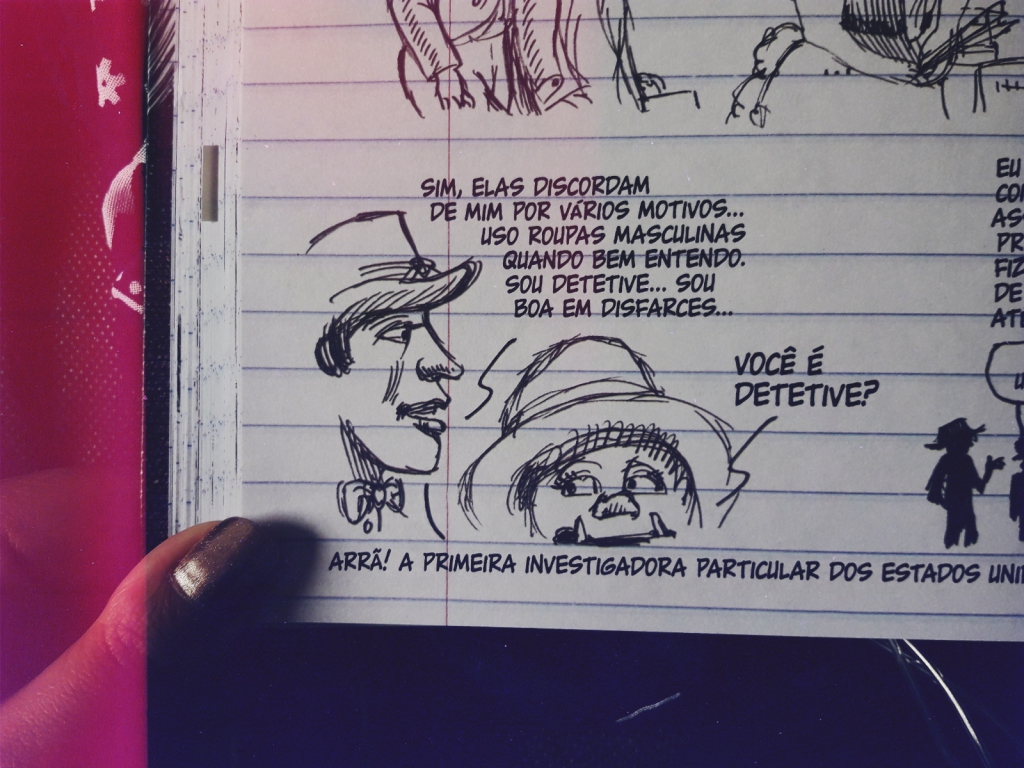 SIM, ELAS DISCORDAM
DE MIM POR VÁRIOS MOTIVOS...
USO ROUPAS MASCULINAS
QUANDO BEM ENTENDO.
SOU DETETIVE... SOU
BOA EM DISFARCES...
VOCÊ É
DETETIVE?
ARRÃ! A PRIMEIRA INVESTIGADORA PARTICULAR DOS ESTADOS
EU
AS
DE